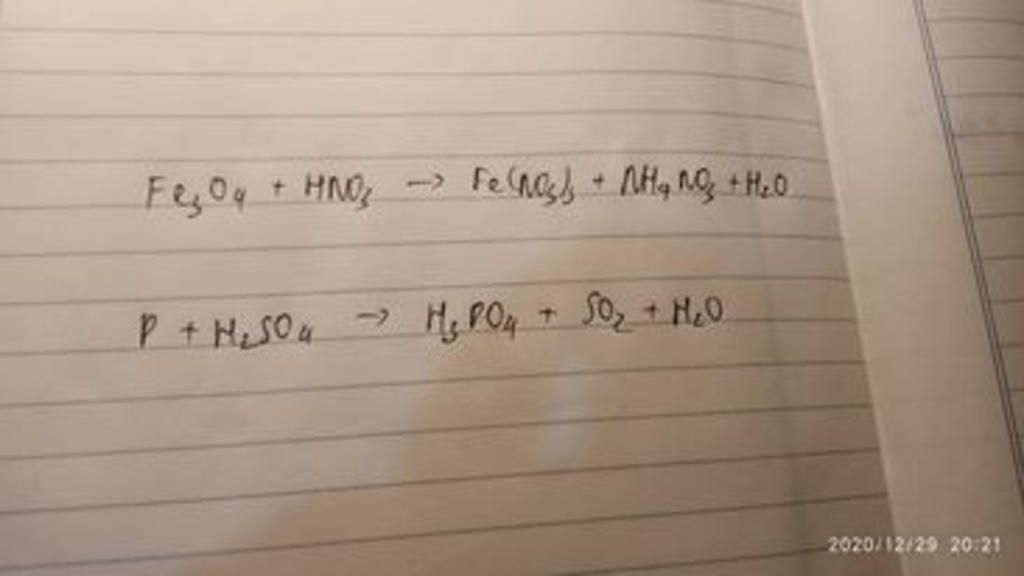 Fe₃O₄ + HNO₃ → Fe(NO₃)₃ + NH₄NO₃ + H₂O
P + H₂SO₄ → H₃PO₄ + SO₂ + H₂O
2020/12/29 20:21